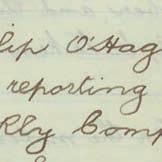 lip O'Hag
reporting
kly Comp